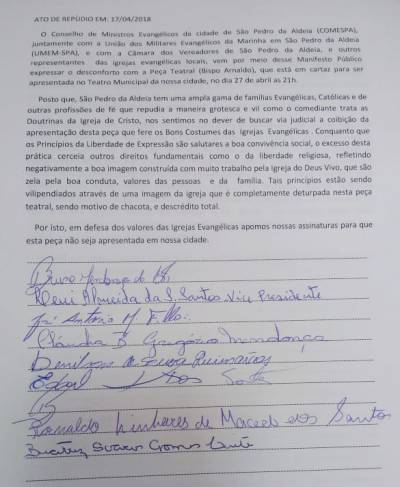 ATO DE REPÚDIO EM: 17/04/2018
O Conselho de Ministros Evangélicos da cidade de São Pedro da Aldeia (COMESPA),
juntamente com a União dos Militares Evangélicos da Marinha em São Pedro da Aldeia
(UMEM-SPA), e com a Câmara dos Vereadores de São Pedro da Aldeia, e outros
representantes das igrejas evangélicas locais, vem por meio desse Manifesto Público
expressar o desconforto com a Peça Teatral (Bispo Arnaldo), que está em cartaz para ser
apresentada no Teatro Municipal da nossa cidade, no dia 27 de abril as 21h.
Posto que, São Pedro da Aldeia tem uma ampla gama de famílias Evangélicas, Católicas e de
outras profissões de fé que repudia a maneira grotesca e vil como o comediante trata as
Doutrinas da Igreja de Cristo, nos sentimos no dever de buscar via judicial a coibição da
apresentação desta peça que fere os Bons Costumes das Igrejas Evangélicas . Conquanto que
os Princípios da Liberdade de Expressão são salutares a boa convivência social, o excesso desta
prática cerceia outros direitos fundamentais como o da liberdade religiosa, refletindo
negativamente a boa imagem construída com muito trabalho pela Igreja do Deus Vivo, que são
zela pela boa conduta, valores das pessoas e da família. Tais princípios estão sendo
vilipendiados através de uma imagem da igreja que é completamente deturpada nesta peça
teatral, sendo motivo de chacota, e descrédito total.
Por isto, em defesa dos valores das Igrejas Evangélicas apomos nossas assinaturas para que
esta peça não seja apresentada em nossa cidade.
Almeida da S. Santos Vice Presidente
Antonio M.
Claudia B. Gregório Mendonça
de Souza Guimarães
Ronaldo Linhares de Macedo dos Santos
Suarez Gomes